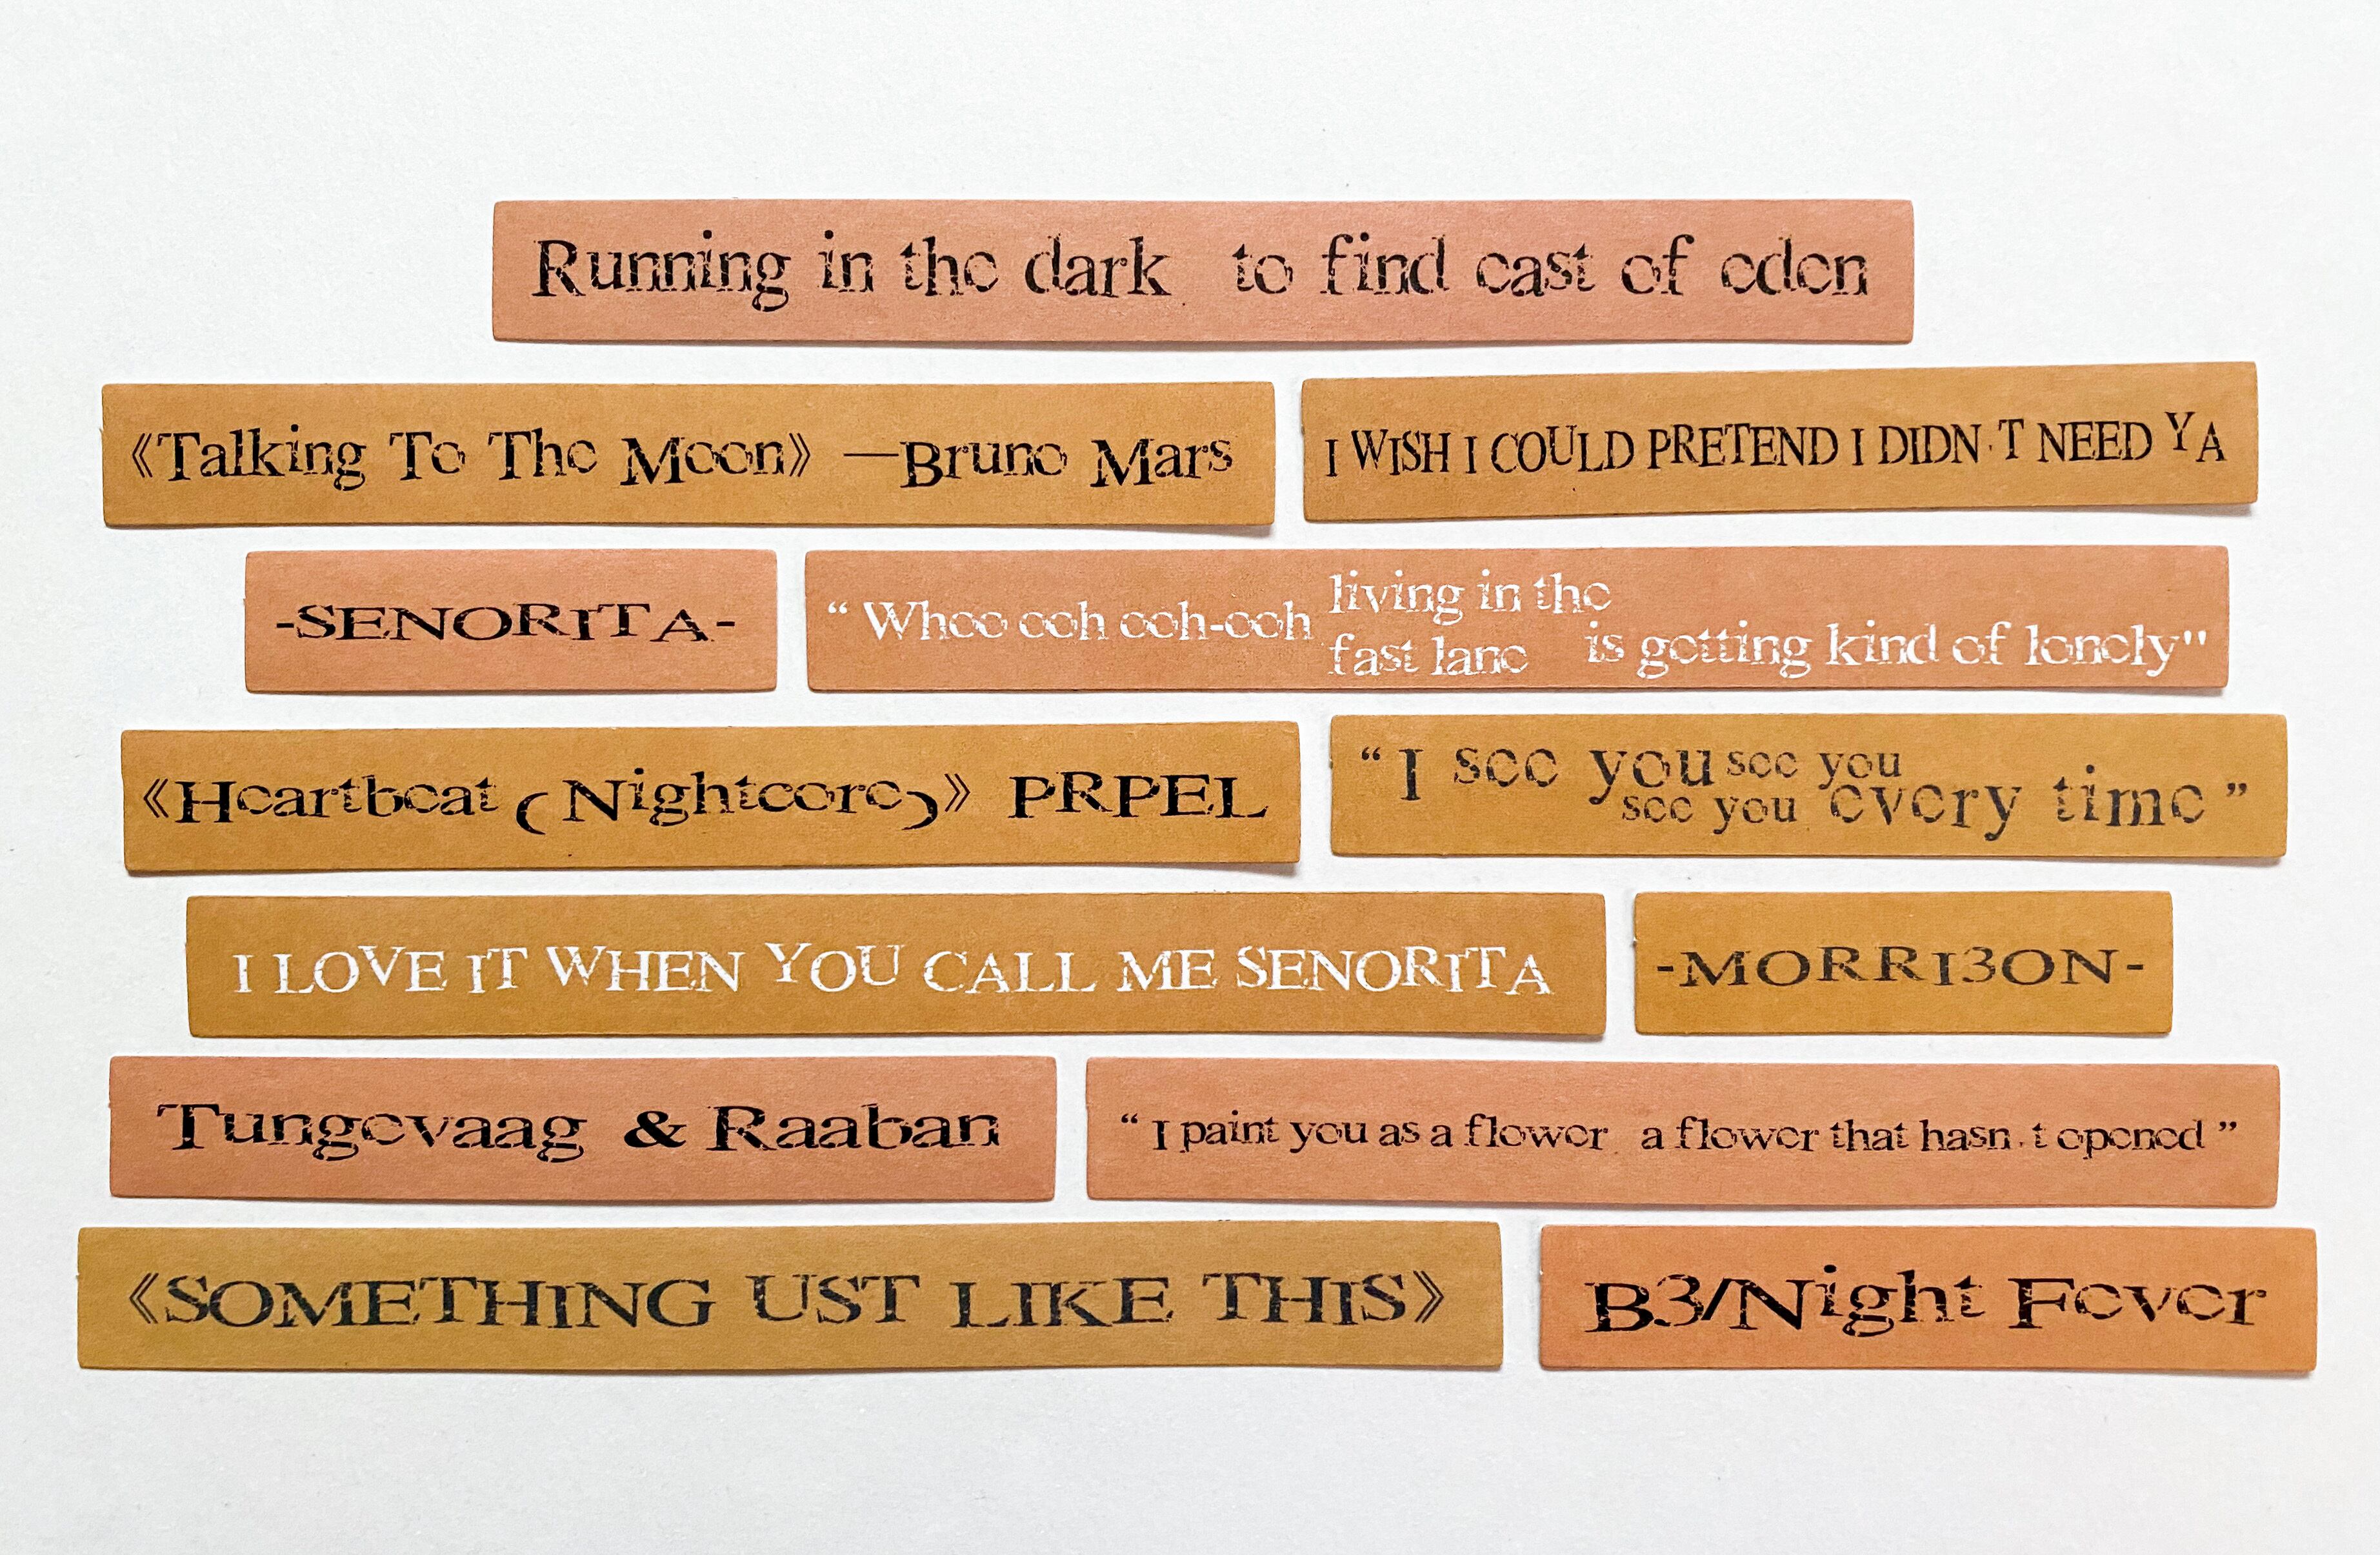 Running in the dark to find east of eden
《Talking To The Moon》 —Bruno Mars
I WISH I COULD PRETEND I DIDN'T NEED YA
-SENORITA-
“ Whoo ooh ooh-ooh living in the
fast lane is getting kind of lonely"
《Heartbeat (Nightcore)》 PRPEL
“I see you see you
see you every time”
I LOVE IT WHEN YOU CALL ME SENORITA
-MORRI3ON-
Tungevaag & Raaban
“I paint you as a flower a flower that hasn't opened”
《SOMETHING UST LIKE THIS》
B3/Night Fever